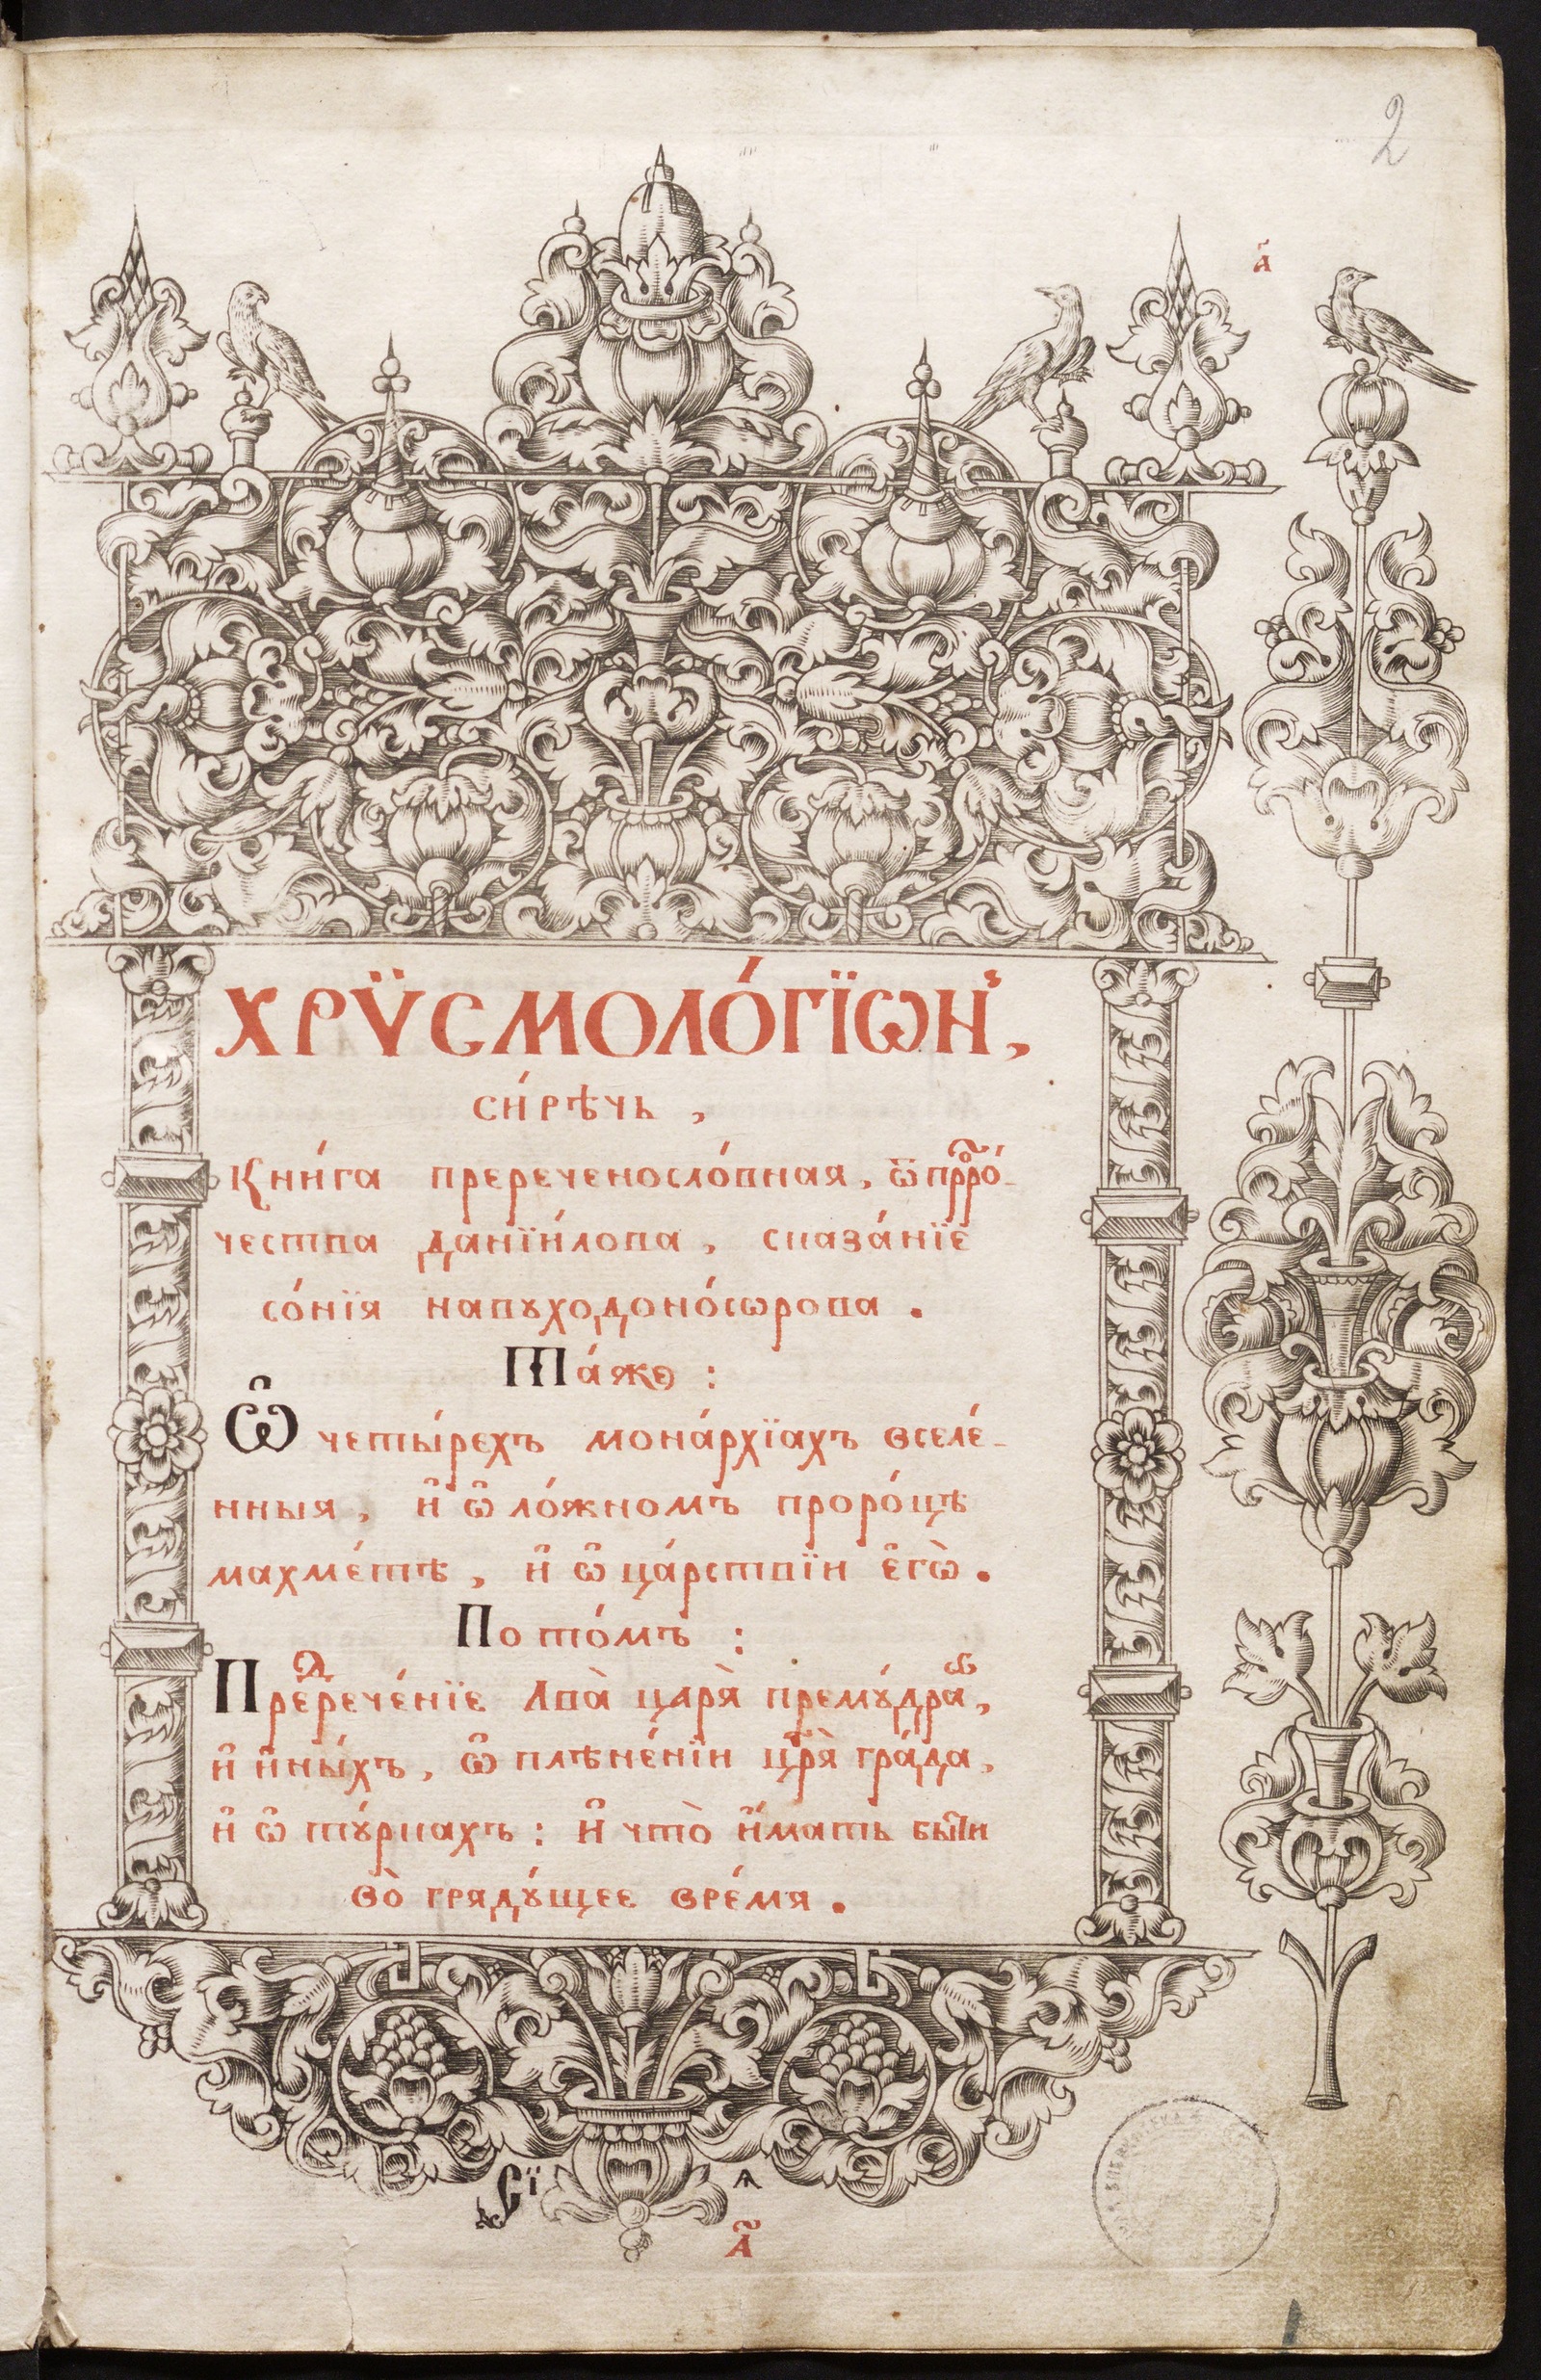 2
а҃
ХРѴ̈СМОЛО́ГЇѠН,
си́рѣчь,
Кни́га пререченосло́вная, ѿ прⷪ҇ро́-
чества данїи́лова, сказа́нїе
со́нїя навꙋходоно́сѡрова.
Та́же:
Ѽ четы́рехъ мона́рхїахъ вселе́-
нныя, и҆ ѽ ло́жномъ проро́цѣ
махме́тѣ, и҆ ѽ ца́рствїи є҆гѡ̀.
Пото́мъ:
Преⷣрече́нїе Лва̀ царя̀ премꙋ́драⷢ҇,
и҆ и҆ны́хъ, ѽ плѣне́нїи цр҃я̀ гра́да,
и҆ ѽ тꙋ́ркахъ: и҆ что̀ и҆́мать бы́ти
во̀ грядꙋ́щее вре́мя.
ѧ
а҃